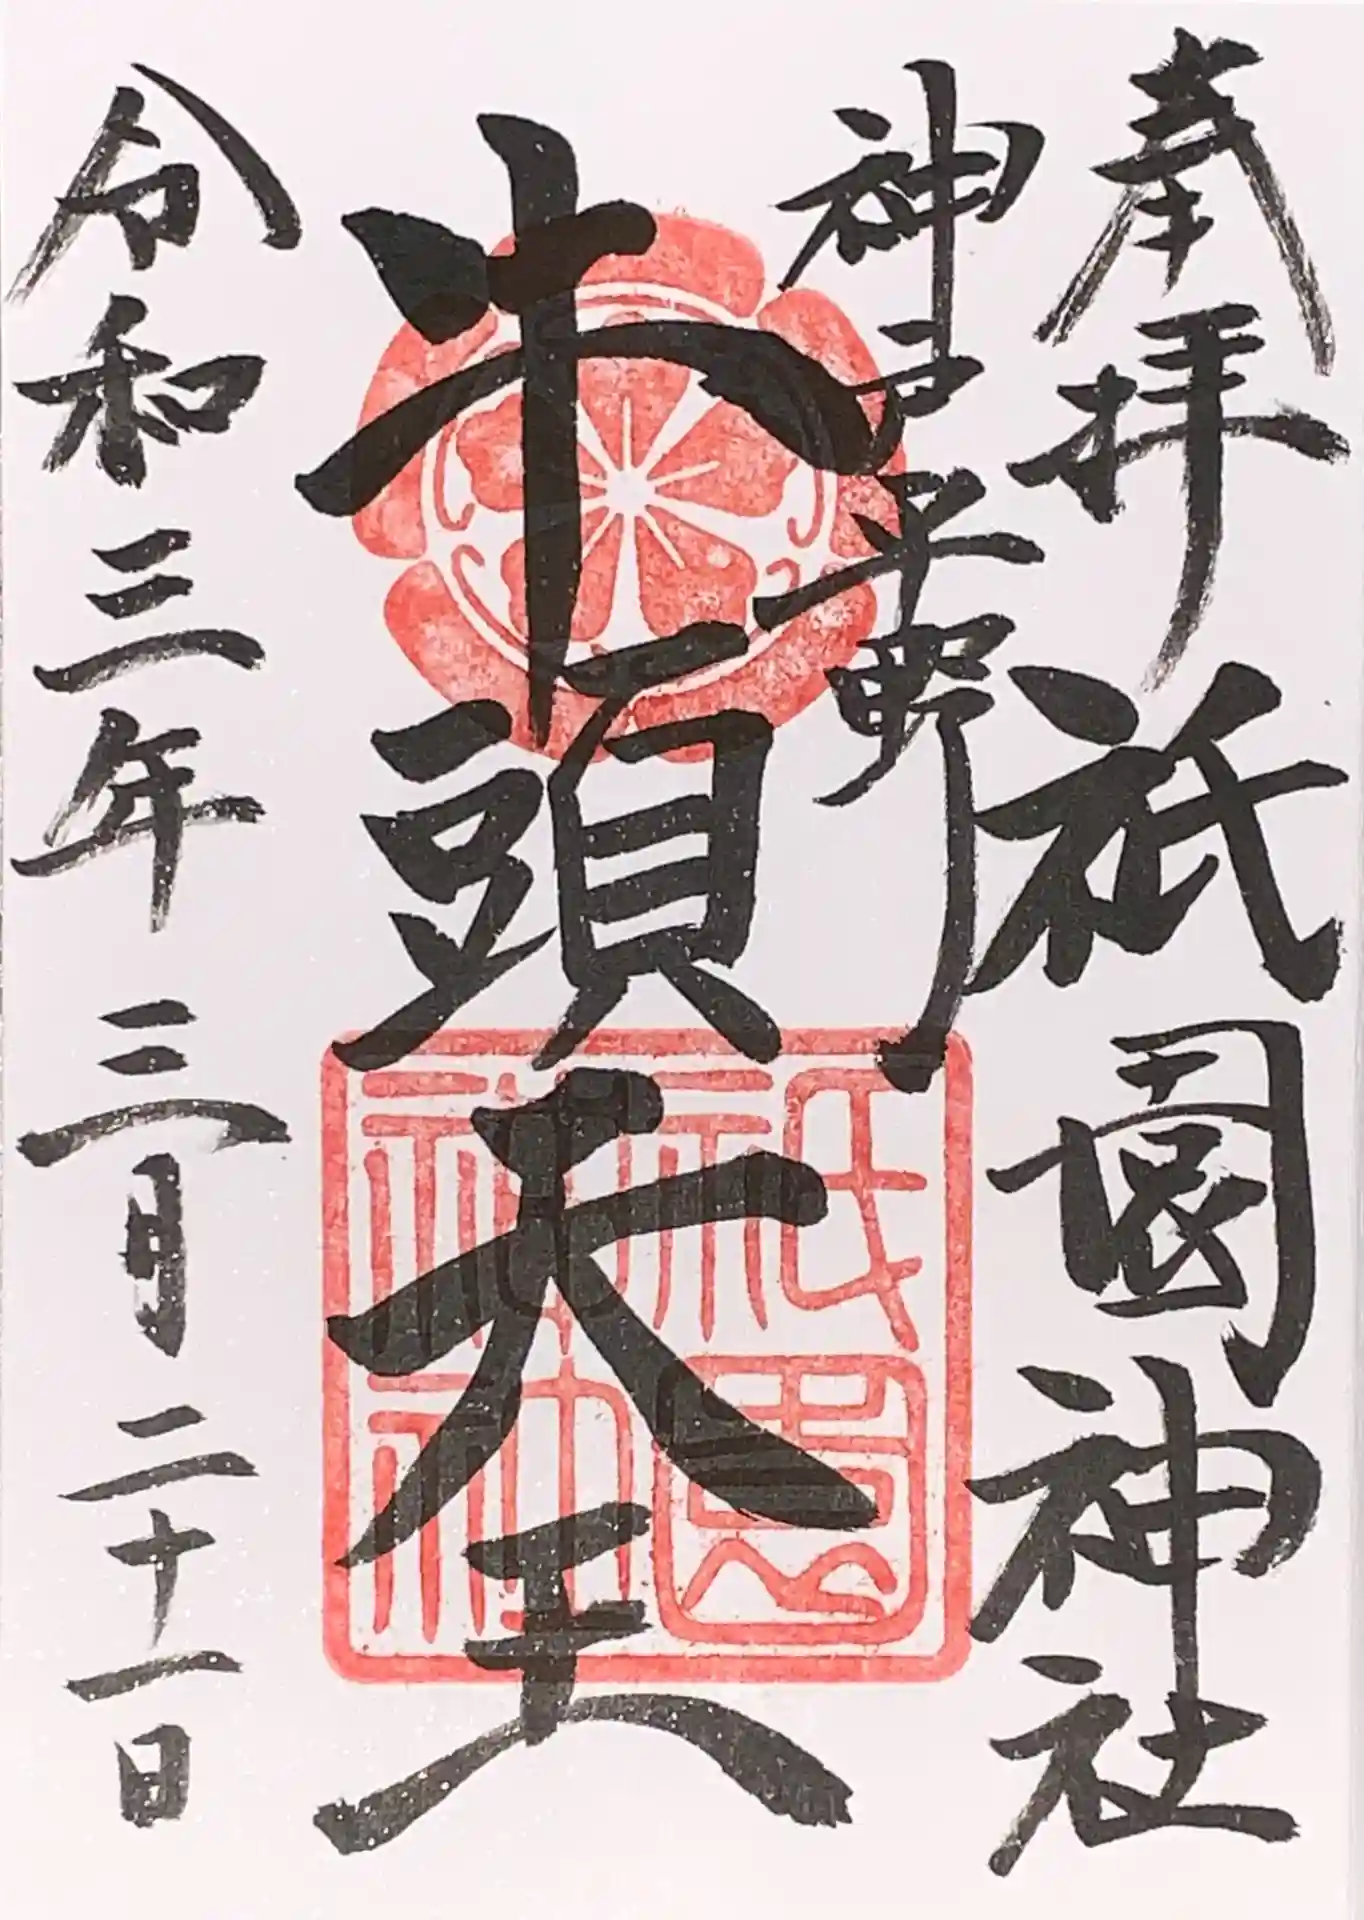 奉拝 祇園神社
神戸平野
牛頭天王
令和三年三月二十一日
祇園神社